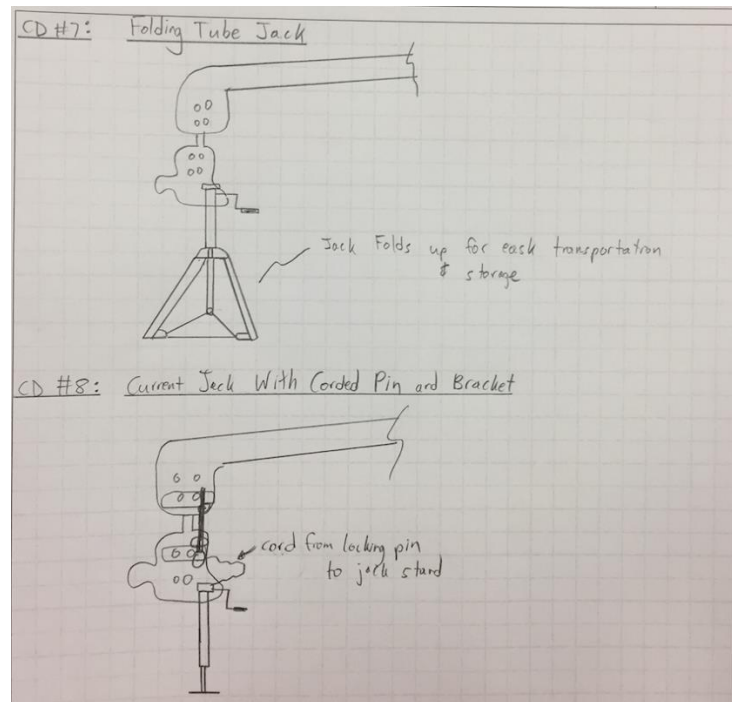 CD #7: Folding Tube Jack
Jack Folds up for eask transportation
& storage
CD #8: Current Jack With Corded Pin and Bracket
cord from locking pin
to jack stand